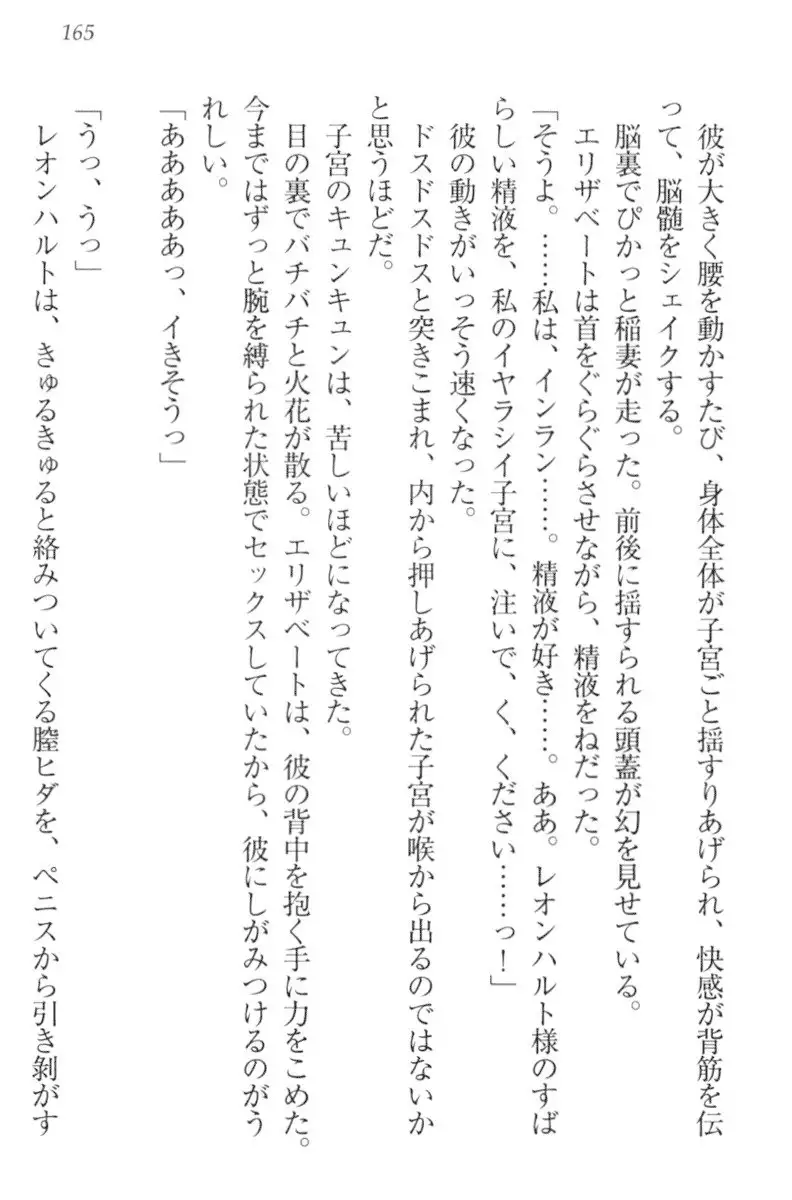 165
彼が大きく腰を動かすたび、身体全体が子宮ごと揺すりあげられ、快感が背筋を伝
って、脳髄をシェイクする。
脳裏でぴかっと稲妻が走った。前後に揺すられる頭蓋が幻を見せている。
エリザベートは首をぐらぐらさせながら、精液をねだった。
「そうよ。……私は、インラン……。精液が好き……。ああ。レオンハルト様のすば
らしい精液を、私のイヤラシイ子宮に、注いで、く、ください……っ！」
彼の動きがいっそう速くなった。
ドスドスドスと突きこまれ、内から押しあげられた子宮が喉から出るのではないか
と思うほどだ。
子宮のキュンキュンは、苦しいほどになってきた。
目の裏でバチバチと火花が散る。エリザベートは、彼の背中を抱く手に力をこめた。
今まではずっと腕を縛られた状態でセックスしていたから、彼にしがみつけるのがう
れしい。
「あああああっ、イきそうっ」
「うっ、うっ」
レオンハルトは、きゅるきゅると絡みついてくる膣ヒダを、ペニスから引き剝がす